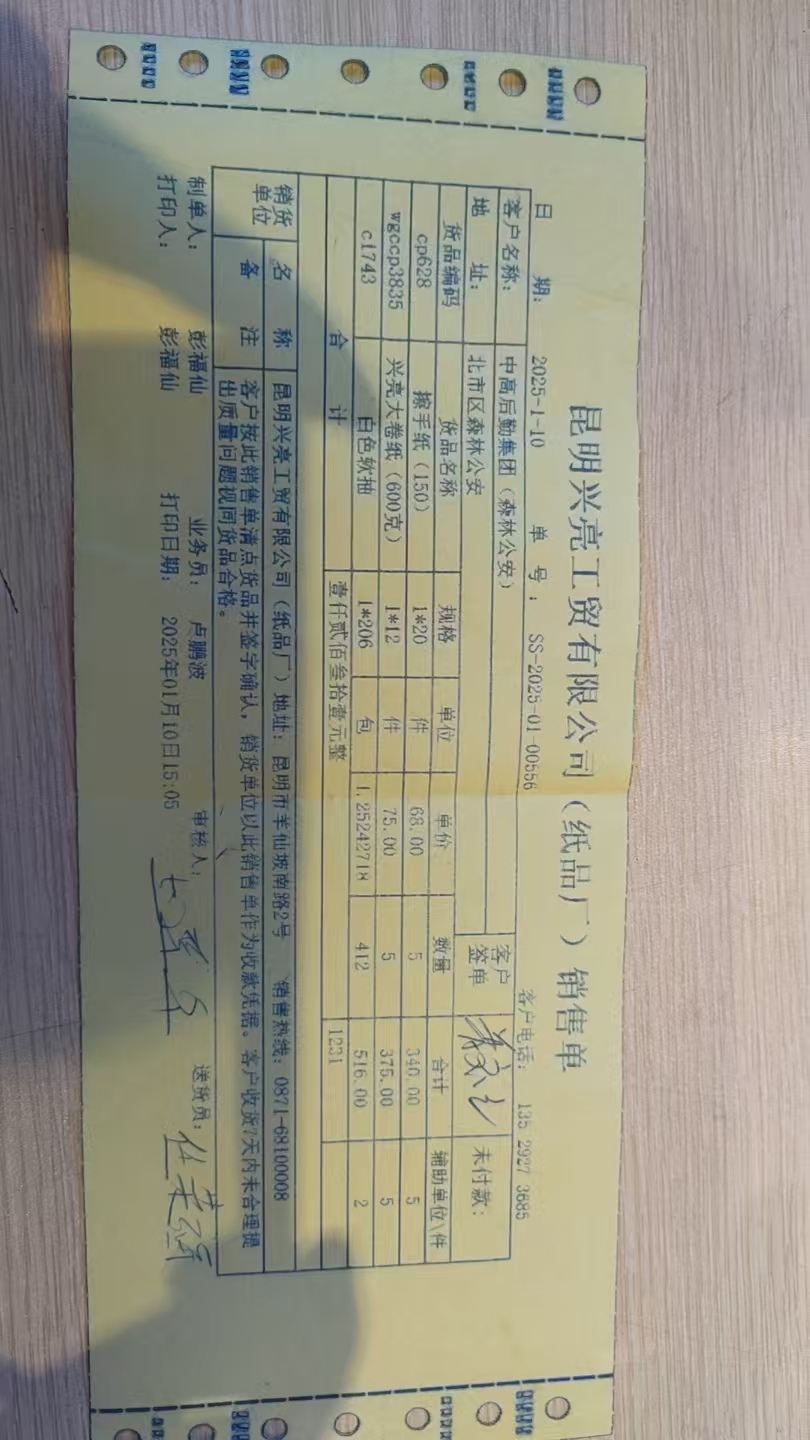 昆明兴亮工贸有限公司（纸品厂）销售单
日 期： 2025-1-10 单 号： SS-2025-01-00556 客户电话： 135 2927 3685
客户名称： 中高后勤集团（森林公安） 客户签单 未付款：
地 址： 北市区森林公安
货品编码 货品名称 规格 单位 单价 数量 合计 辅助单位\件
cp628 擦手纸（150） 1*20 件 68.00 5 340.00 5
wgccp3835 兴亮大卷纸（600克） 1*12 件 75.00 5 375.00 5
c1743 白色软抽 1*206 包 1.25242718 412 516.00 2
合 计 壹仟贰佰叁拾壹元整 1231
销货单位 名 称 昆明兴亮工贸有限公司（纸品厂）地址： 昆明市羊仙坡南路2号 销售热线：0871-68100008
备 注 客户按此销售单清点货品并签字确认，销货单位以此销售单作为收款凭据。客户收货7天内未合理提
出质量问题视同货品合格。
制单人： 彭福仙 业务员： 卢鹏波 审核人： 送货员：
打印人： 彭福仙 打印日期： 2025年01月10日15:05